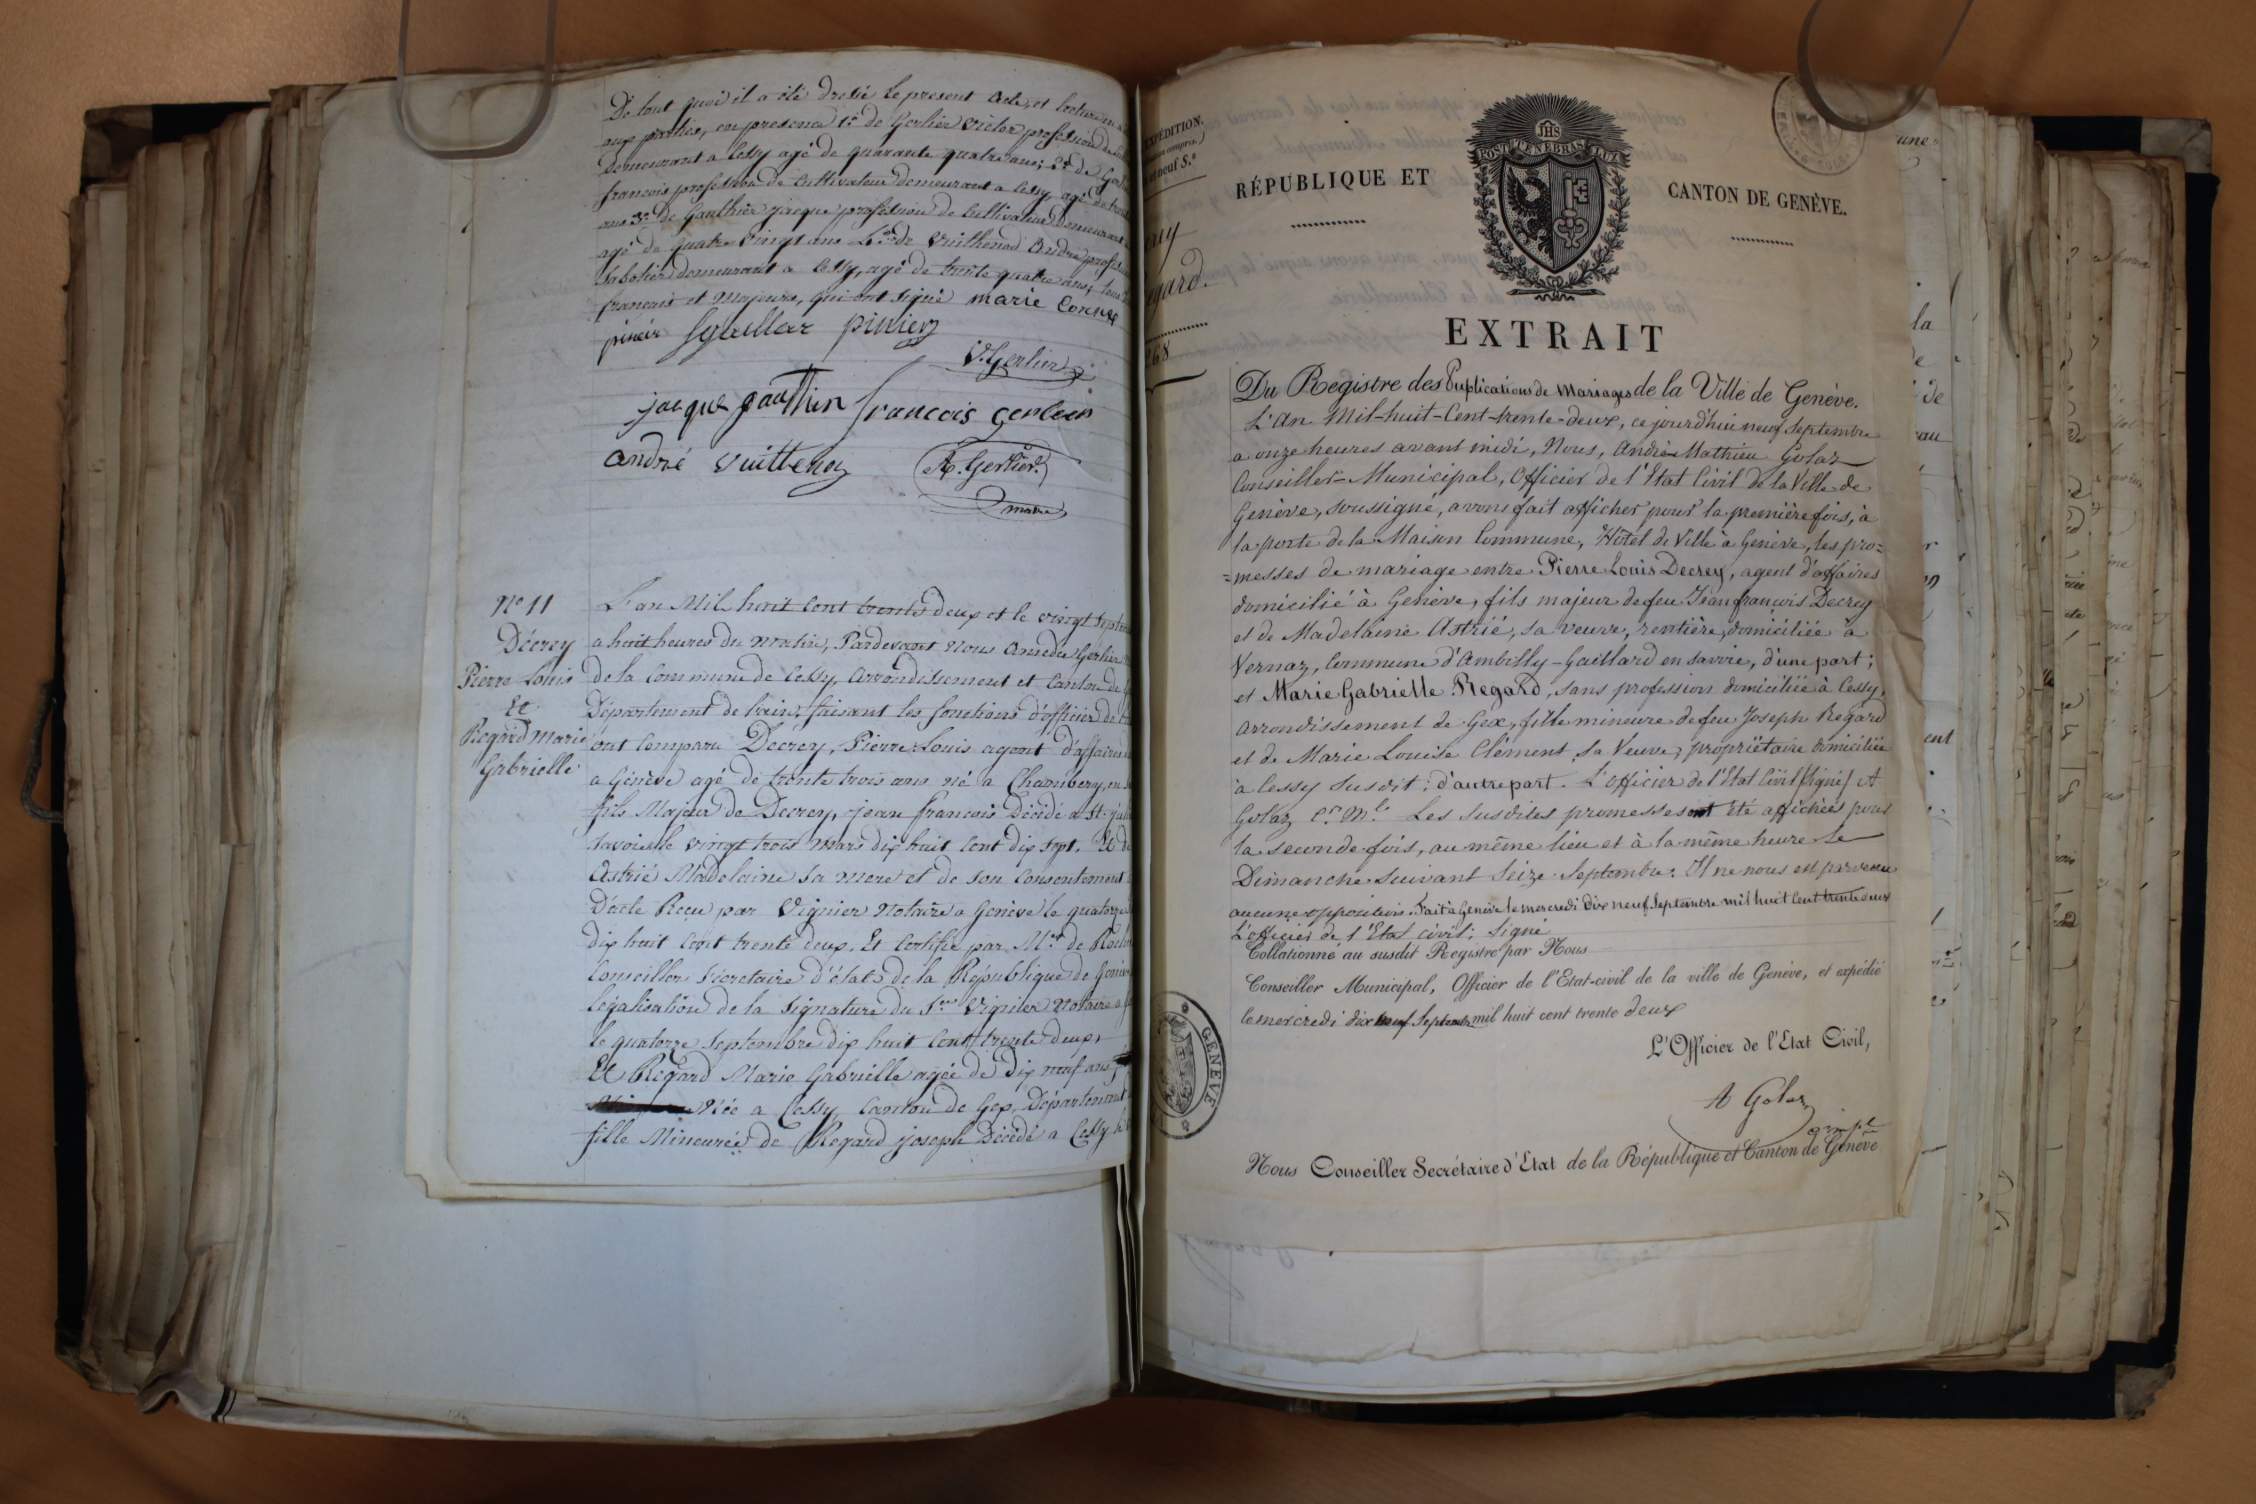 De tout quoi il a été dressé le present Acte, et lecture
aux parties, en presence 1º de Gerlier Victor profession de
demeurant a Cessy agé de quarante quatre ans; 2º de
françois profession de Cultivateur demeurant a Cessy agé de
ans 3º de Gaulhier jacque profession de Cultivateur demeurant
agé de quatre vingt ans 4º de Vuithenod André
Sabotier demeurant a Cessy, agé de trente quatre ans, tous
français et majeurs, qui ont signé marie
V. Gerlier
jacque gauthier francois gerlier
andré vuittenoz A. Gerlier
maire
Nº 11
Décrey
Pierre Louis
Et
Regard Marie
Gabrielle
L'an Mil huit Cent trente deux et le vingt sept
a huit heures du matin, Pardevant Nous Amedée Gerlier
de la Commune de Cessy, arrondissement et Canton de
Département de l'ain, faisant les fonctions d'officier de
ont Comparu Decrey, Pierre Louis agent d'affaires
a Génève agé de trente trois ans né a Chambery, en
fils Majeur de Decrey, jean françois Décédé a St.
Savoie le vingt trois mars dix huit Cent dix sept. Et de
Astrié Madelaine sa mere et de son Consentement
D'acte Recu par Vignier Notaire a Genève le quatorze
dix huit Cent trente deux. Et Certifié par Mr. de
Conseiller Sécretaire d'état de la République de Genève
légalisation de la signature du Sr. Vignier Notaire a
le quatorze Septembre dix huit Cent trente deux,
Et Regard Marie Gabrielle agée de Dix neuf ans
Née a Cessy Canton de Gex, Département
fille Mineure de Regard joseph Décédé a Cessy le
EXPÉDITION.
compris.)
neuf S.s
gard.
268
RÉPUBLIQUE ET CANTON DE GENÈVE.
JHS
POST TENEBRAS LUX
EXTRAIT
Du Registre des Publications de Mariages de la Ville de Genève.
L'An Mil-huit-Cent-trente-deux, ce jourd'hui neuf Septembre
a onze heures avant midi, Nous, André-Mathieu Golaz
Conseiller-Municipal, Officier de l'Etat Civil de la Ville de
Genève, soussigné, avons fait afficher pour la première fois, à
la porte de la Maison Commune, Hôtel de Ville à Genève, les pro=
=messes de mariage entre Pierre Louis Decrey, agent d'affaires
domicilié à Genève, fils majeur de feu Jean françois Decrey
et de Madelaine Astrié, sa veuve, rentière, domiciliée à
Vernaz, Commune d'Ambilly-Gaillard en savoie, d'une part;
et Marie Gabrielle Regard, sans profession domiciliée à Cessy,
arrondissement de Gex, fille mineure de feu Joseph Regard
et de Marie Louise Clément, sa Veuve, propriétaire domiciliée
à Cessy susdit; d'autre part. L'officier de l'Etat Civil (signé) A
Golaz Cr. Ml. Les susdites promesses ont été affichées pour
la seconde fois, au même lieu et à la même heure le
Dimanche suivant Seize Septembre. Il ne nous est parvenu
aucune opposition. Fait à Genève le mercredi Dix neuf Septembre mil huit Cent trente deux
L'officier de l'Etat civil: Signé
Collationné au susdit Registre par Nous
Conseiller Municipal, Officier de l'Etat-civil de la ville de Genève, et expédié
le mercredi dix neuf Septembre mil huit cent trente deux
L'Officier de l'Etat Civil,
A Golaz
GENEVE
Nous Conseiller Secrétaire d'Etat de la République et Canton de Genève